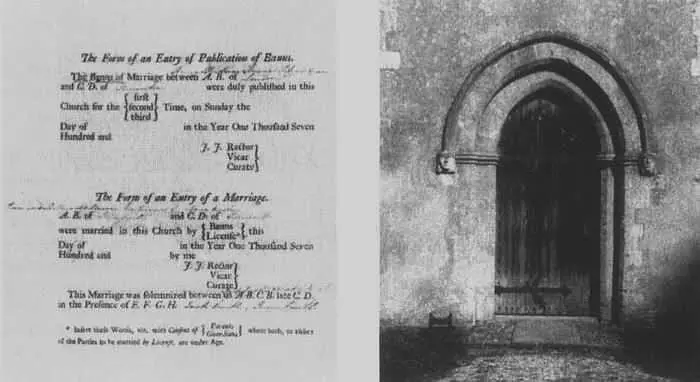 The Form of an Entry of Publication of Banns.
The Banns of Marriage between A. B. of
and C. D. of were duly published in this
Church for the { first second third } Time, on Sunday the
Day of in the Year One Thousand Seven
Hundred and
J. J. Rector
Vicar
Curate
The Form of an Entry of a Marriage.
A. B. of and C. D. of
were married in this Church by { Banns License* } this
Day of in the Year One Thousand Seven
Hundred and by me
J. J. Rector
Vicar
Curate
This Marriage was solemnized between us A. B. C. B. late C. D.
in the Presence of E. F. G. H.
* Insert these Words, viz. with Consent of { Parents Guardians } where both, or either
of the Parties to be married by Licence, are under Age.